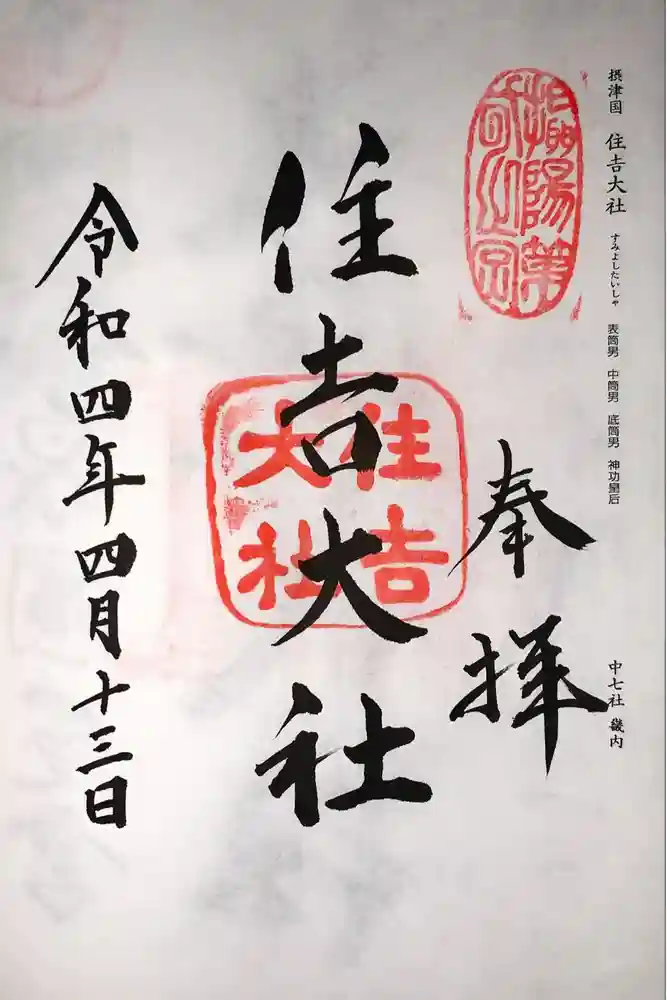 摂津国 住吉大社 すみよしたいしゃ 表筒男 中筒男 底筒男 神功皇后
中七社 畿内
奉拝
住吉大社
住吉
大社
令和四年四月十三日